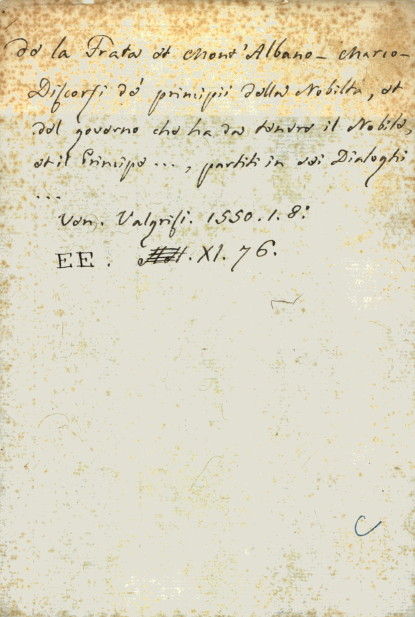 de la Frata et Mont'Albano - Marco -
Discorsi de' principii della Nobilta, et
del governo che ha da tenere il Nobile,
et il Principe ..., partiti in sei Dialoghi
...
Ven. Valgrisi. 1550. 1. 8:
EE. . XI. 76.